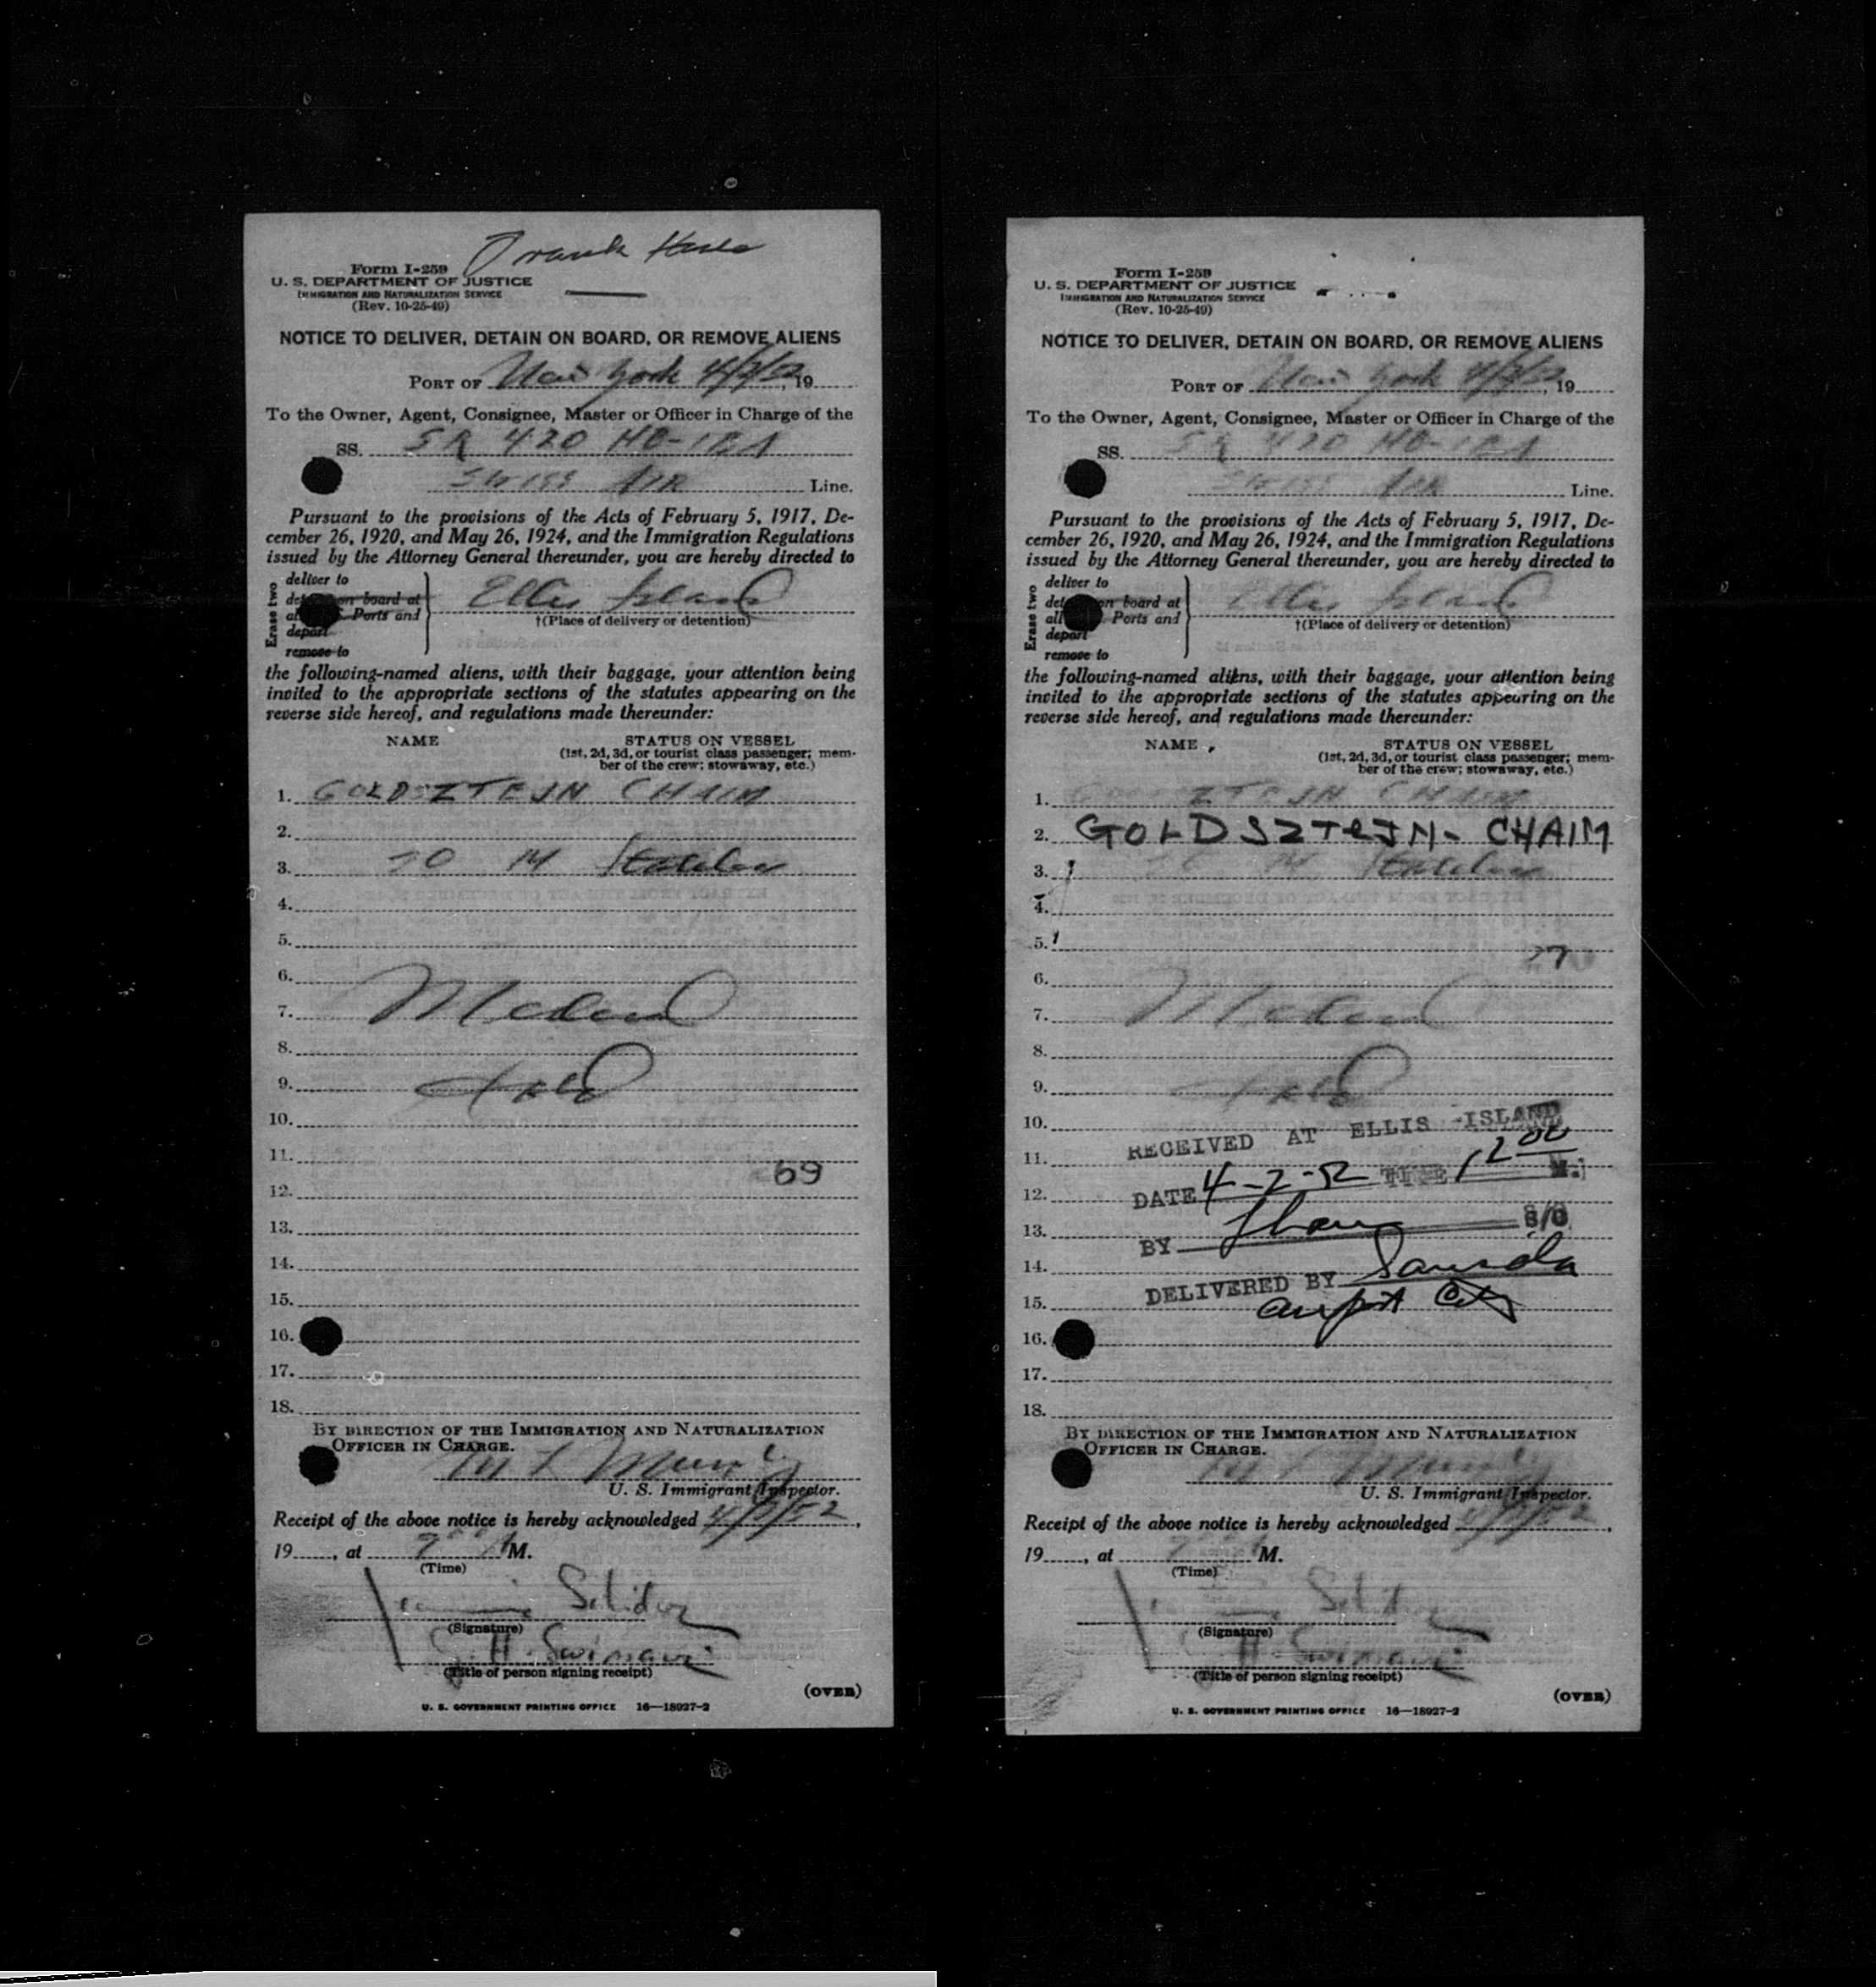 Form I-259
U. S. DEPARTMENT OF JUSTICE
IMMIGRATION AND NATURALIZATION SERVICE
(Rev. 10-25-49)
NOTICE TO DELIVER, DETAIN ON BOARD, OR REMOVE ALIENS
PORT OF New York 4/2/52, 19
To the Owner, Agent, Consignee, Master or Officer in Charge of the
SS. SR 420 HB-
Swiss Air Line.
Pursuant to the provisions of the Acts of February 5, 1917, De-
cember 26, 1920, and May 26, 1924, and the Immigration Regulations
issued by the Attorney General thereunder, you are hereby directed to
Erase two
deliver to
on board at
Ports and
depart
remove to
Ellis Island
†(Place of delivery or detention)
the following-named aliens, with their baggage, your attention being
invited to the appropriate sections of the statutes appearing on the
reverse side hereof, and regulations made thereunder:
NAME STATUS ON VESSEL
(1st, 2d, 3d, or tourist class passenger; mem-
ber of the crew; stowaway, etc.)
1. GOLDSZTEJN CHAIM
2.
3. M
4.
5.
6.
7.
8.
9.
10.
11.
69
12.
13.
14.
15.
16.
17.
18.
BY DIRECTION OF THE IMMIGRATION AND NATURALIZATION
OFFICER IN CHARGE.
U. S. Immigrant Inspector.
Receipt of the above notice is hereby acknowledged 4/2/52,
19, at M.
(Time)
(Signature)
(Title of person signing receipt)
(OVER)
U. S. GOVERNMENT PRINTING OFFICE 16—18927-2
Form I-259
U. S. DEPARTMENT OF JUSTICE
IMMIGRATION AND NATURALIZATION SERVICE
(Rev. 10-25-49)
NOTICE TO DELIVER, DETAIN ON BOARD, OR REMOVE ALIENS
PORT OF New York 4/2/52, 19
To the Owner, Agent, Consignee, Master or Officer in Charge of the
SS. SR 420 HB-
Swiss Air Line.
Pursuant to the provisions of the Acts of February 5, 1917, De-
cember 26, 1920, and May 26, 1924, and the Immigration Regulations
issued by the Attorney General thereunder, you are hereby directed to
Erase two
deliver to
on board at
all Ports and
depart
remove to
Ellis Island
†(Place of delivery or detention)
the following-named aliens, with their baggage, your attention being
invited to the appropriate sections of the statutes appearing on the
reverse side hereof, and regulations made thereunder:
NAME STATUS ON VESSEL
(1st, 2d, 3d, or tourist class passenger; mem-
ber of the crew; stowaway, etc.)
1. GOLDSZTEJN CHAIM
2. GOLDSZTEJN- CHAIM
3. M
4.
5.
6.
7.
8.
9.
10.
RECEIVED AT ELLIS ISLAND
11.
DATE 4-2-52 TIME 12 00 M.
12.
13.
BY S/O
14.
DELIVERED BY
15. airport City
16.
17.
18.
BY DIRECTION OF THE IMMIGRATION AND NATURALIZATION
OFFICER IN CHARGE.
U. S. Immigrant Inspector.
Receipt of the above notice is hereby acknowledged 4/2/52,
19, at M.
(Time)
(Signature)
(Title of person signing receipt)
(OVER)
U. S. GOVERNMENT PRINTING OFFICE 16—18927-2